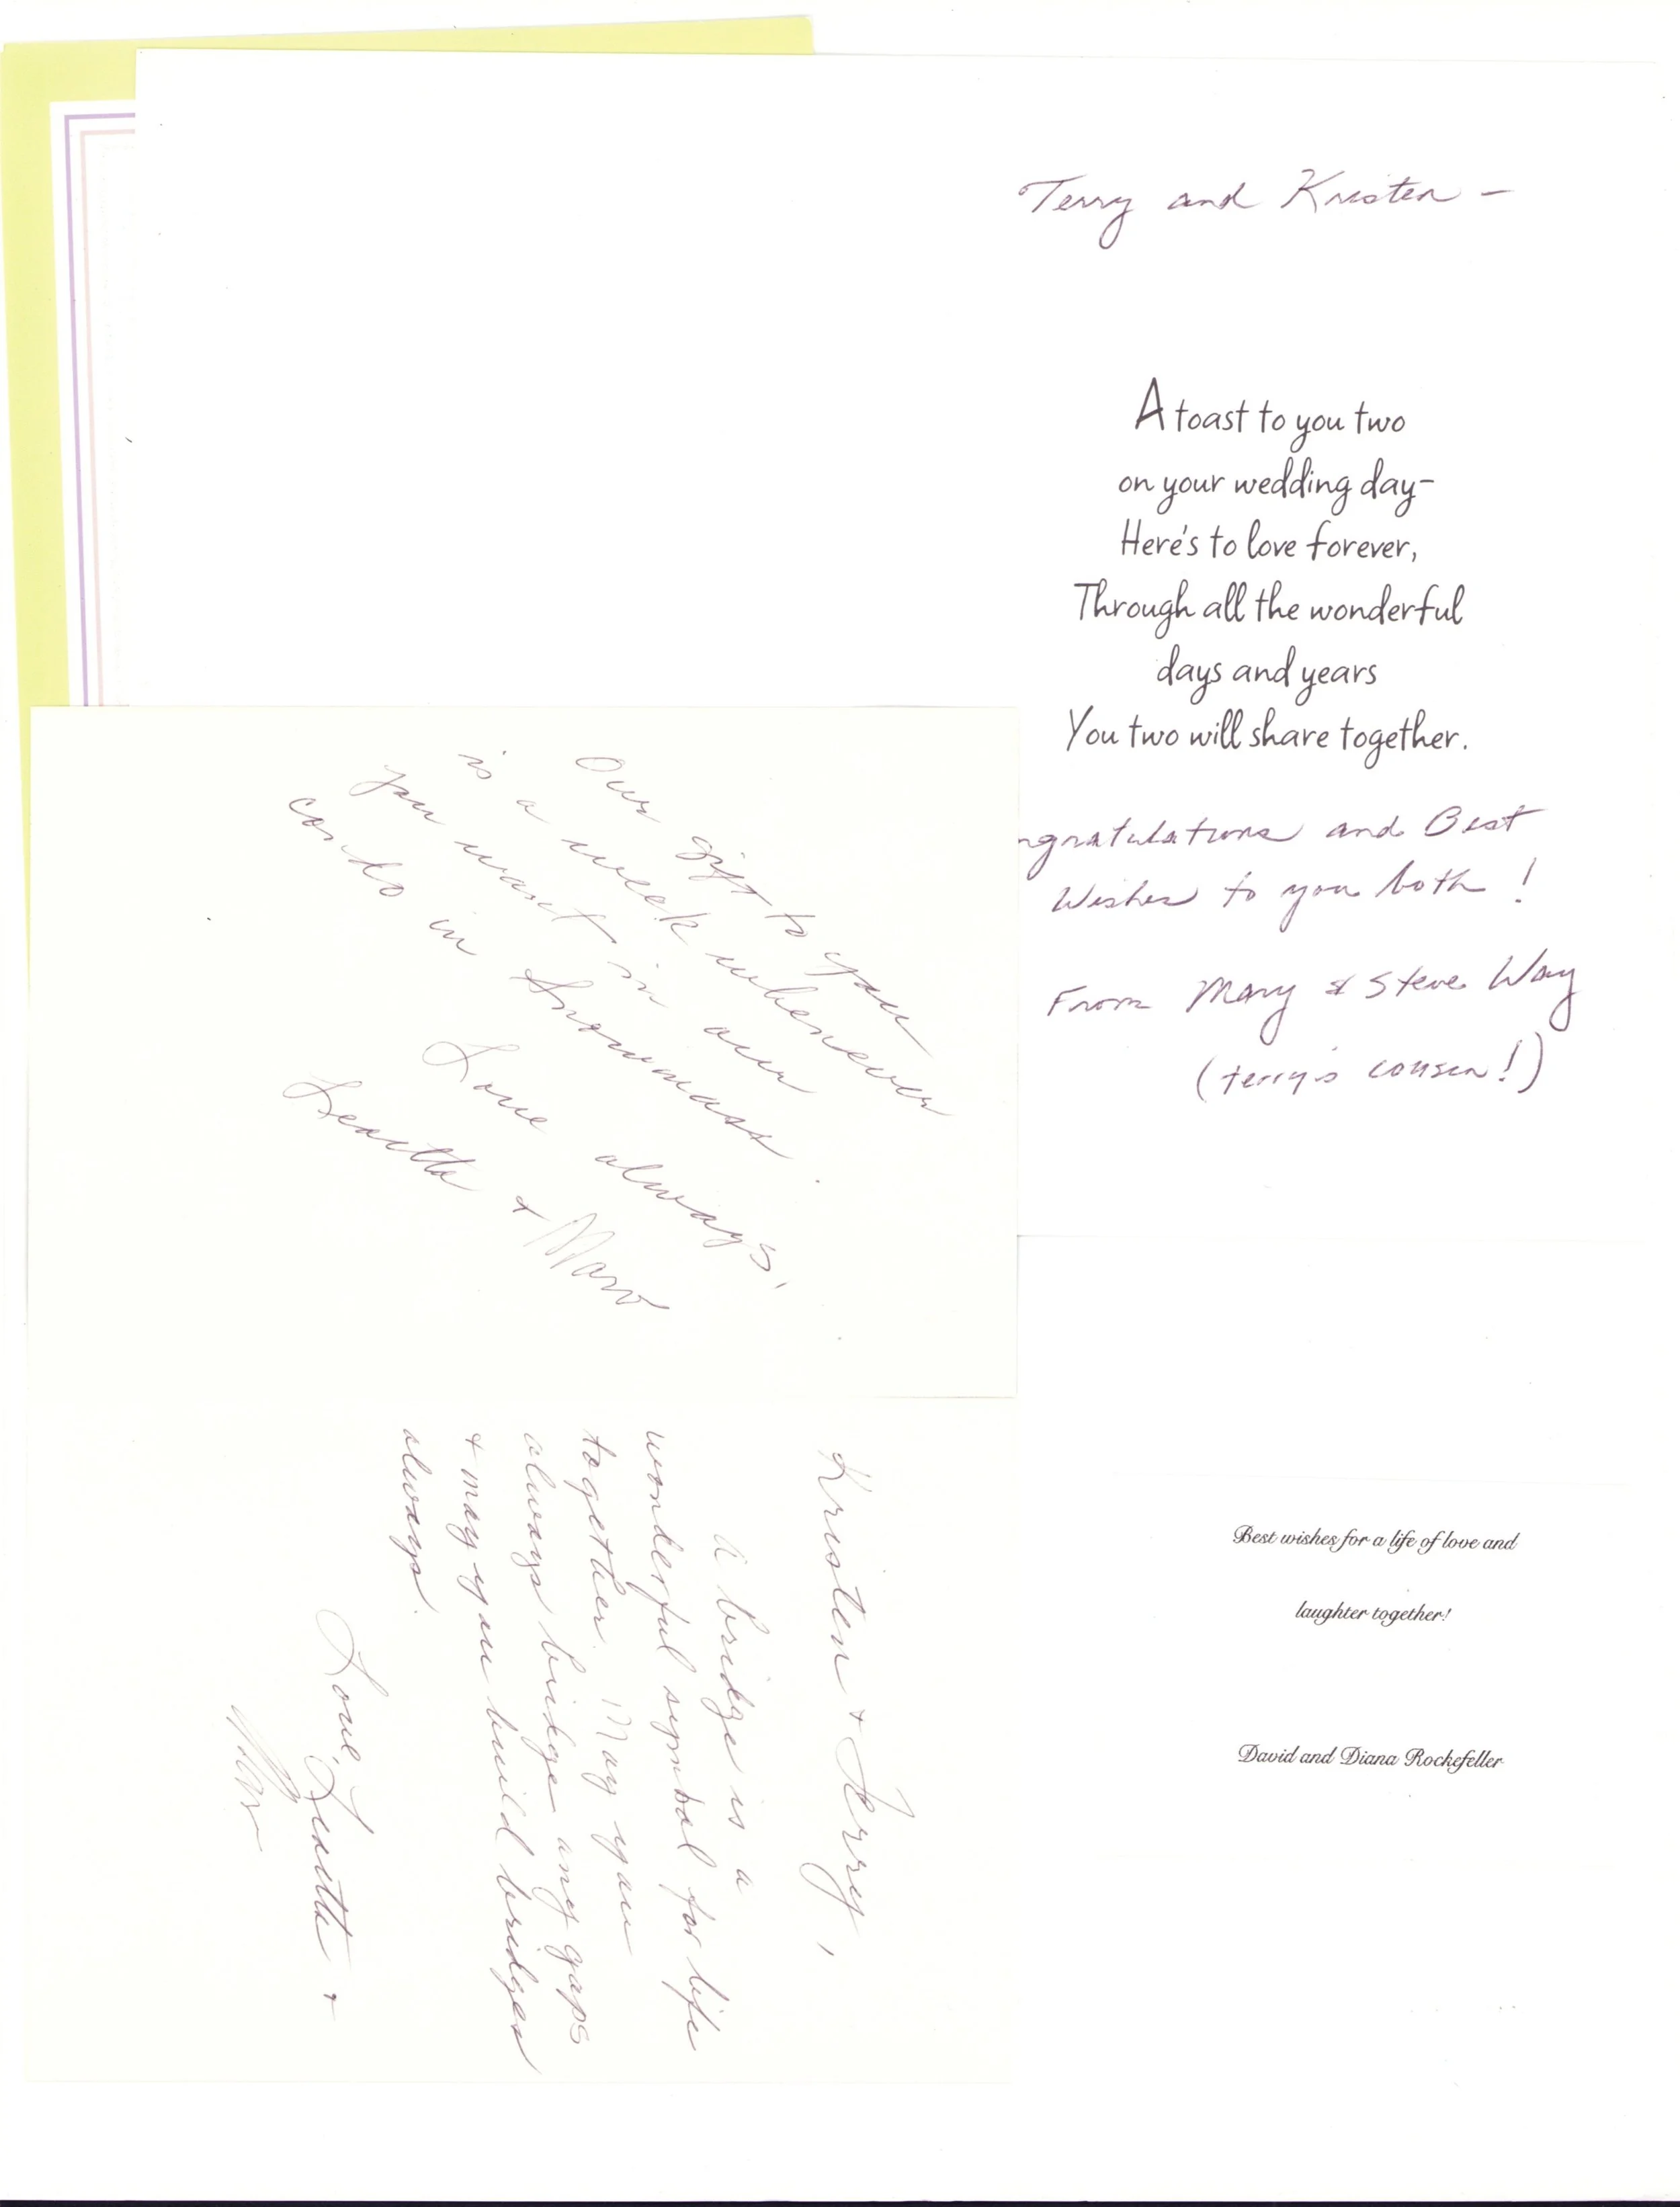 Terry and Kristen –
A toast to you two
on your wedding day–
Here's to love forever,
Through all the wonderful
days and years
You two will share together.
ngratulations and Best
Wishes to you both!
From Mary & Steve Way
(terry's cousin!)
Our gift to you
is a week whenever
you want in our
condo in Snowmass.
Love always,
Leautta + Marv
Kristen + Terry,
A bridge is a
wonderful symbol for life
together. May you
always bridge any gaps
+ may you build bridges
always.
Love, Leautta +
Marv
Best wishes for a life of love and
laughter together!
David and Diana Rockefeller